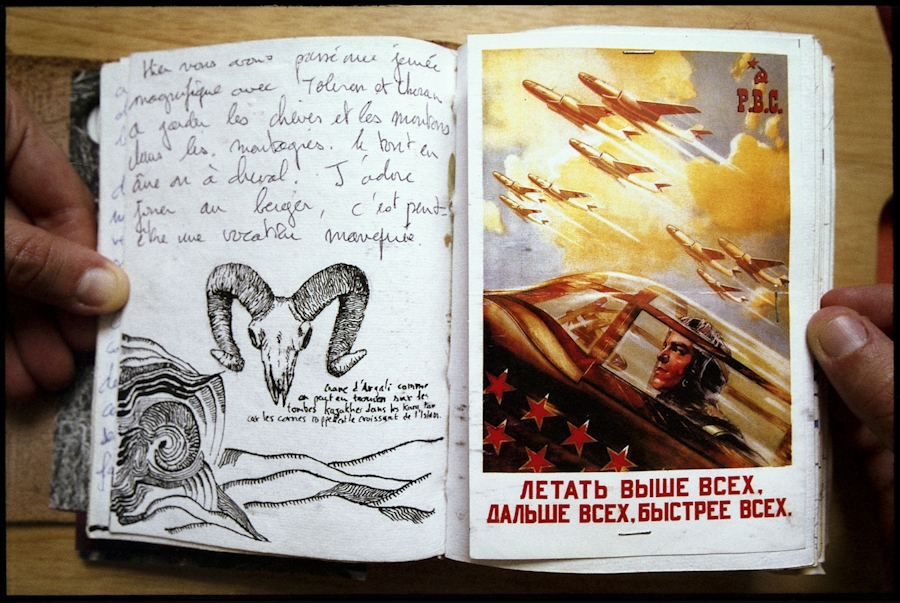 Hier nous avons passé une journée
magnifique avec Toleren et
à garder les chèvres et les moutons
dans les montagnes. le tout en
âne ou à cheval. J'adore
jouer au berger, c'est peut-
être une vocation manquée.
Crane d'Argali comme
on peut en trouver sur les
tombes kazakhes dans les
car les cornes rappellent le croissant de l'Islam.
Р.В.С.
ЛЕТАТЬ ВЫШЕ ВСЕХ,
ДАЛЬШЕ ВСЕХ, БЫСТРЕЕ ВСЕХ.